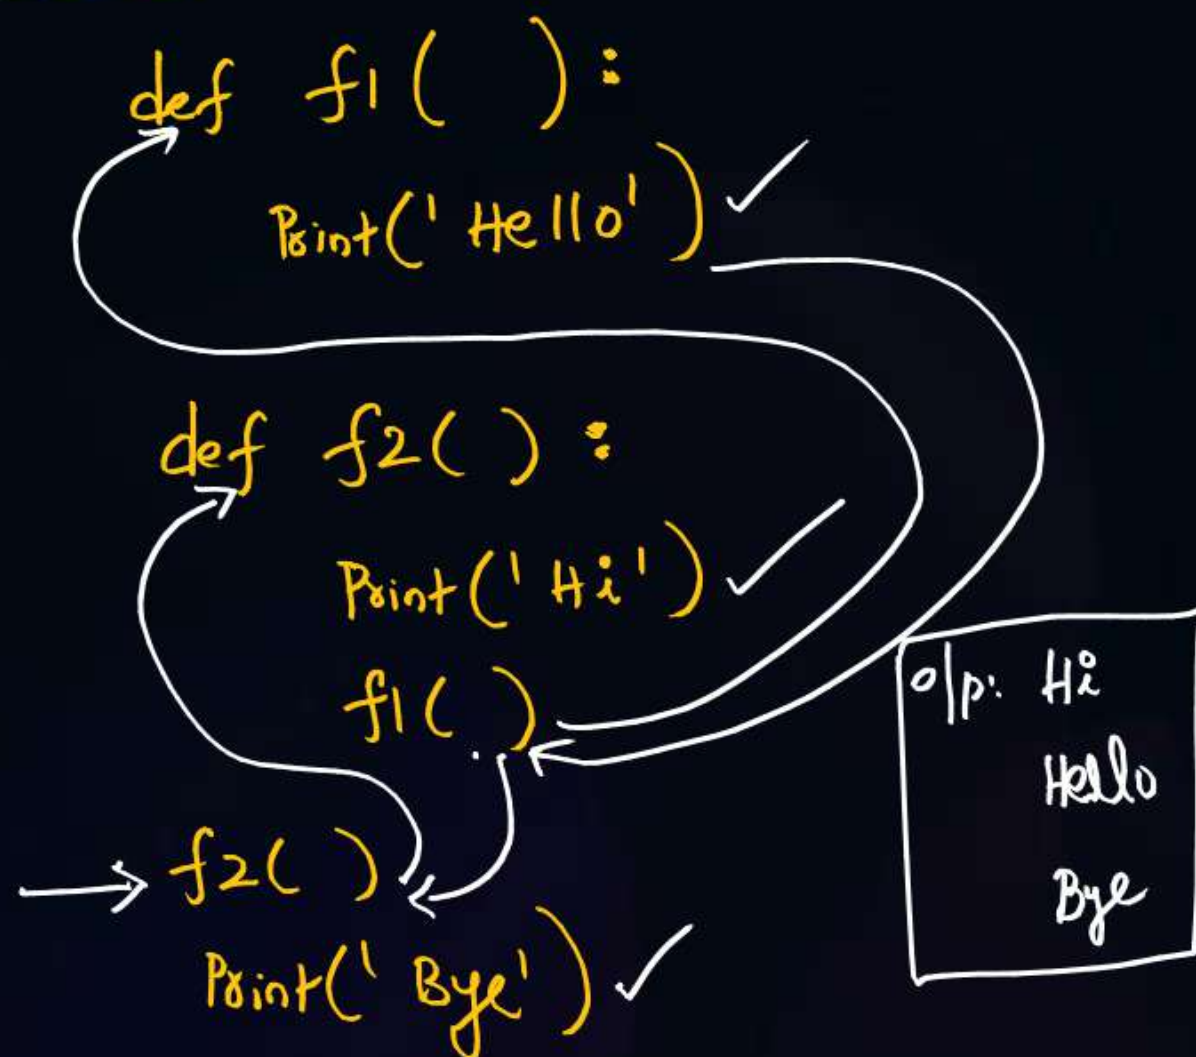 def f1( ):
Print('Hello')
def f2( ):
Print('Hi')
f1( )
f2( )
Print('Bye')
o/p: Hi
Hello
Bye